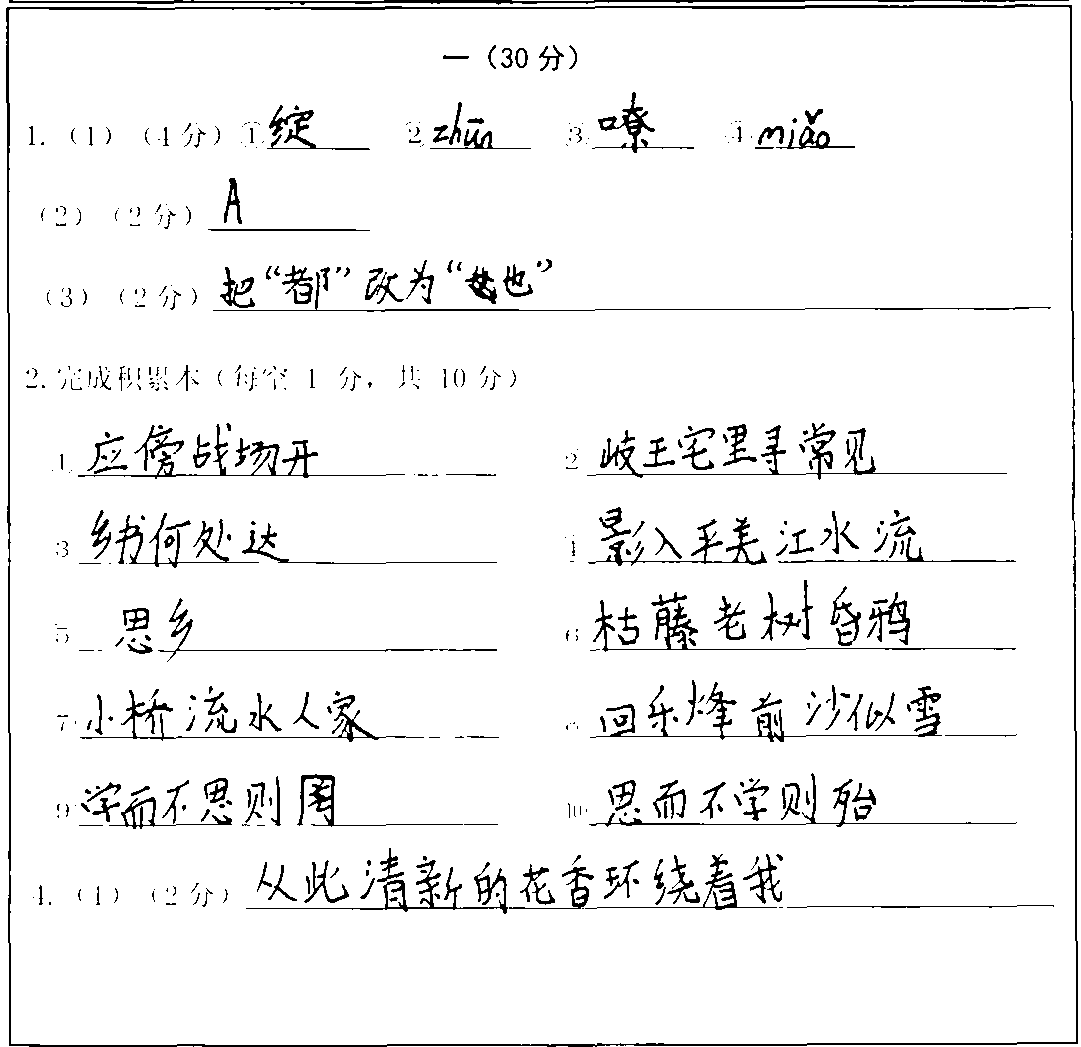 一（30 分）
1.（1）（4 分）①绽 ②zhūn ③嘹 ④miǎo
（2）（2 分）A
（3）（2 分）把“都”改为“也”
2. 完成积累本（每空 1 分，共 10 分）
1 应傍战场开 2 岐王宅里寻常见
3 乡书何处达 4 影入平羌江水流
5 思乡 6 枯藤老树昏鸦
7 小桥流水人家 8 回乐烽前沙似雪
9 学而不思则罔 10 思而不学则殆
4.（1）（2 分）从此清新的花香环绕着我